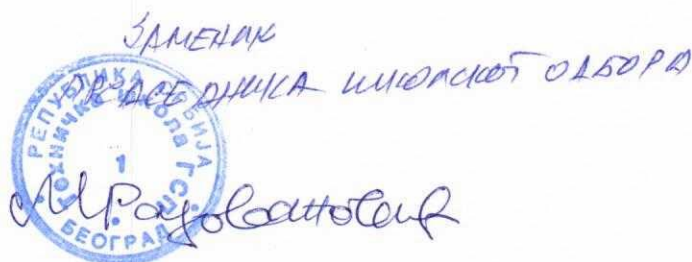 ЗАМЕНИК
ПРЕДСЕДНИКА ШКОЛСКОГ ОДБОРА
РЕПУБЛИКА СРБИЈА
Техничка школа ГСП
1
БЕОГРАД
М Радовановић